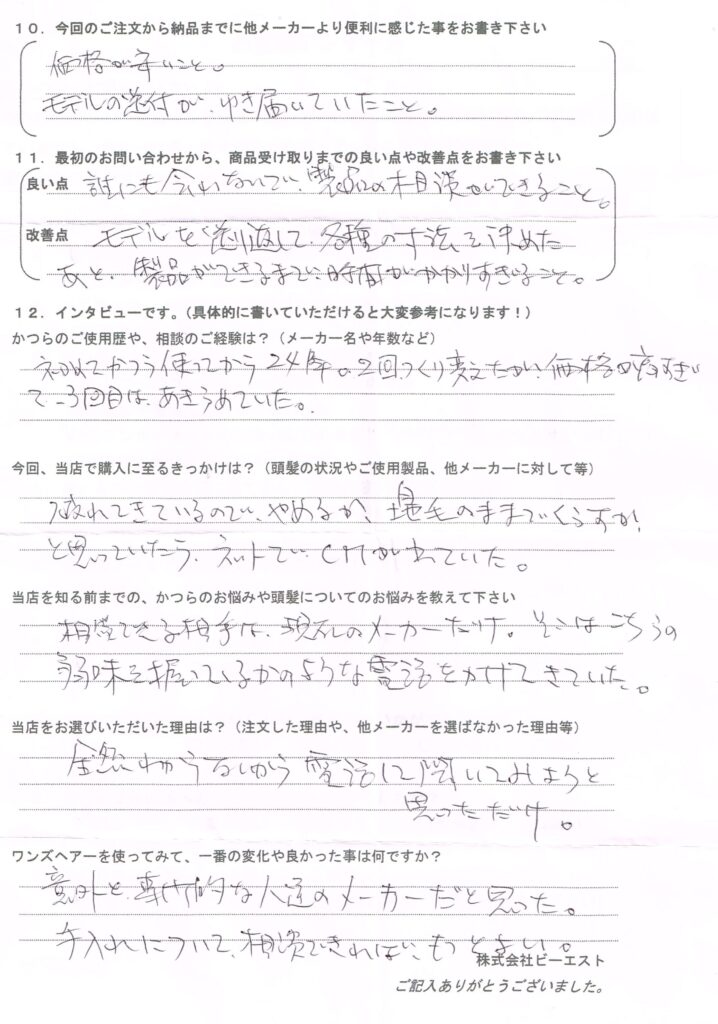 １０．今回のご注文から納品までに他メーカーより便利に感じた事をお書き下さい
価格が安いこと。
モデルの送付が、ゆき届いていたこと。
１１．最初のお問い合わせから、商品受け取りまでの良い点や改善点をお書き下さい
良い点 誰にも会わないで、製品の相談ができること。
改善点 モデルを送り返して、各種の寸法を決めた
あと、製品ができるまで、時間がかかりすぎること。
１２．インタビューです。（具体的に書いていただけると大変参考になります！）
かつらのご使用歴や、相談のご経験は？（メーカー名や年数など）
初めてかつら使ってから24年。2回つくり変えたが、価格が高すぎい
て、3回目は、あきらめていた。
今回、当店で購入に至るきっかけは？（頭髪の状況やご使用製品、他メーカーに対して等）
破れてきているので、やめるか、地毛のままでくらすか！
と思っていたら、ネットで、CMがながれていた。
当店を知る前までの、かつらのお悩みや頭髪についてのお悩みを教えて下さい
相談できる相手は、現在のメーカーだけ。そこはこちらの
弱味を握っているかのような電話をかけてきていた。
当店をお選びいただいた理由は？（注文した理由や、他メーカーを選ばなかった理由等）
全然わからないから電話して聞いてみようと
思っただけ。
ワンズヘアーを使ってみて、一番の変化や良かった事は何ですか？
意外と、専門的な人達のメーカーだと思った。
手入れについて、相談できれば、もっとよい。
株式会社ビーエスト
ご記入ありがとうございました。